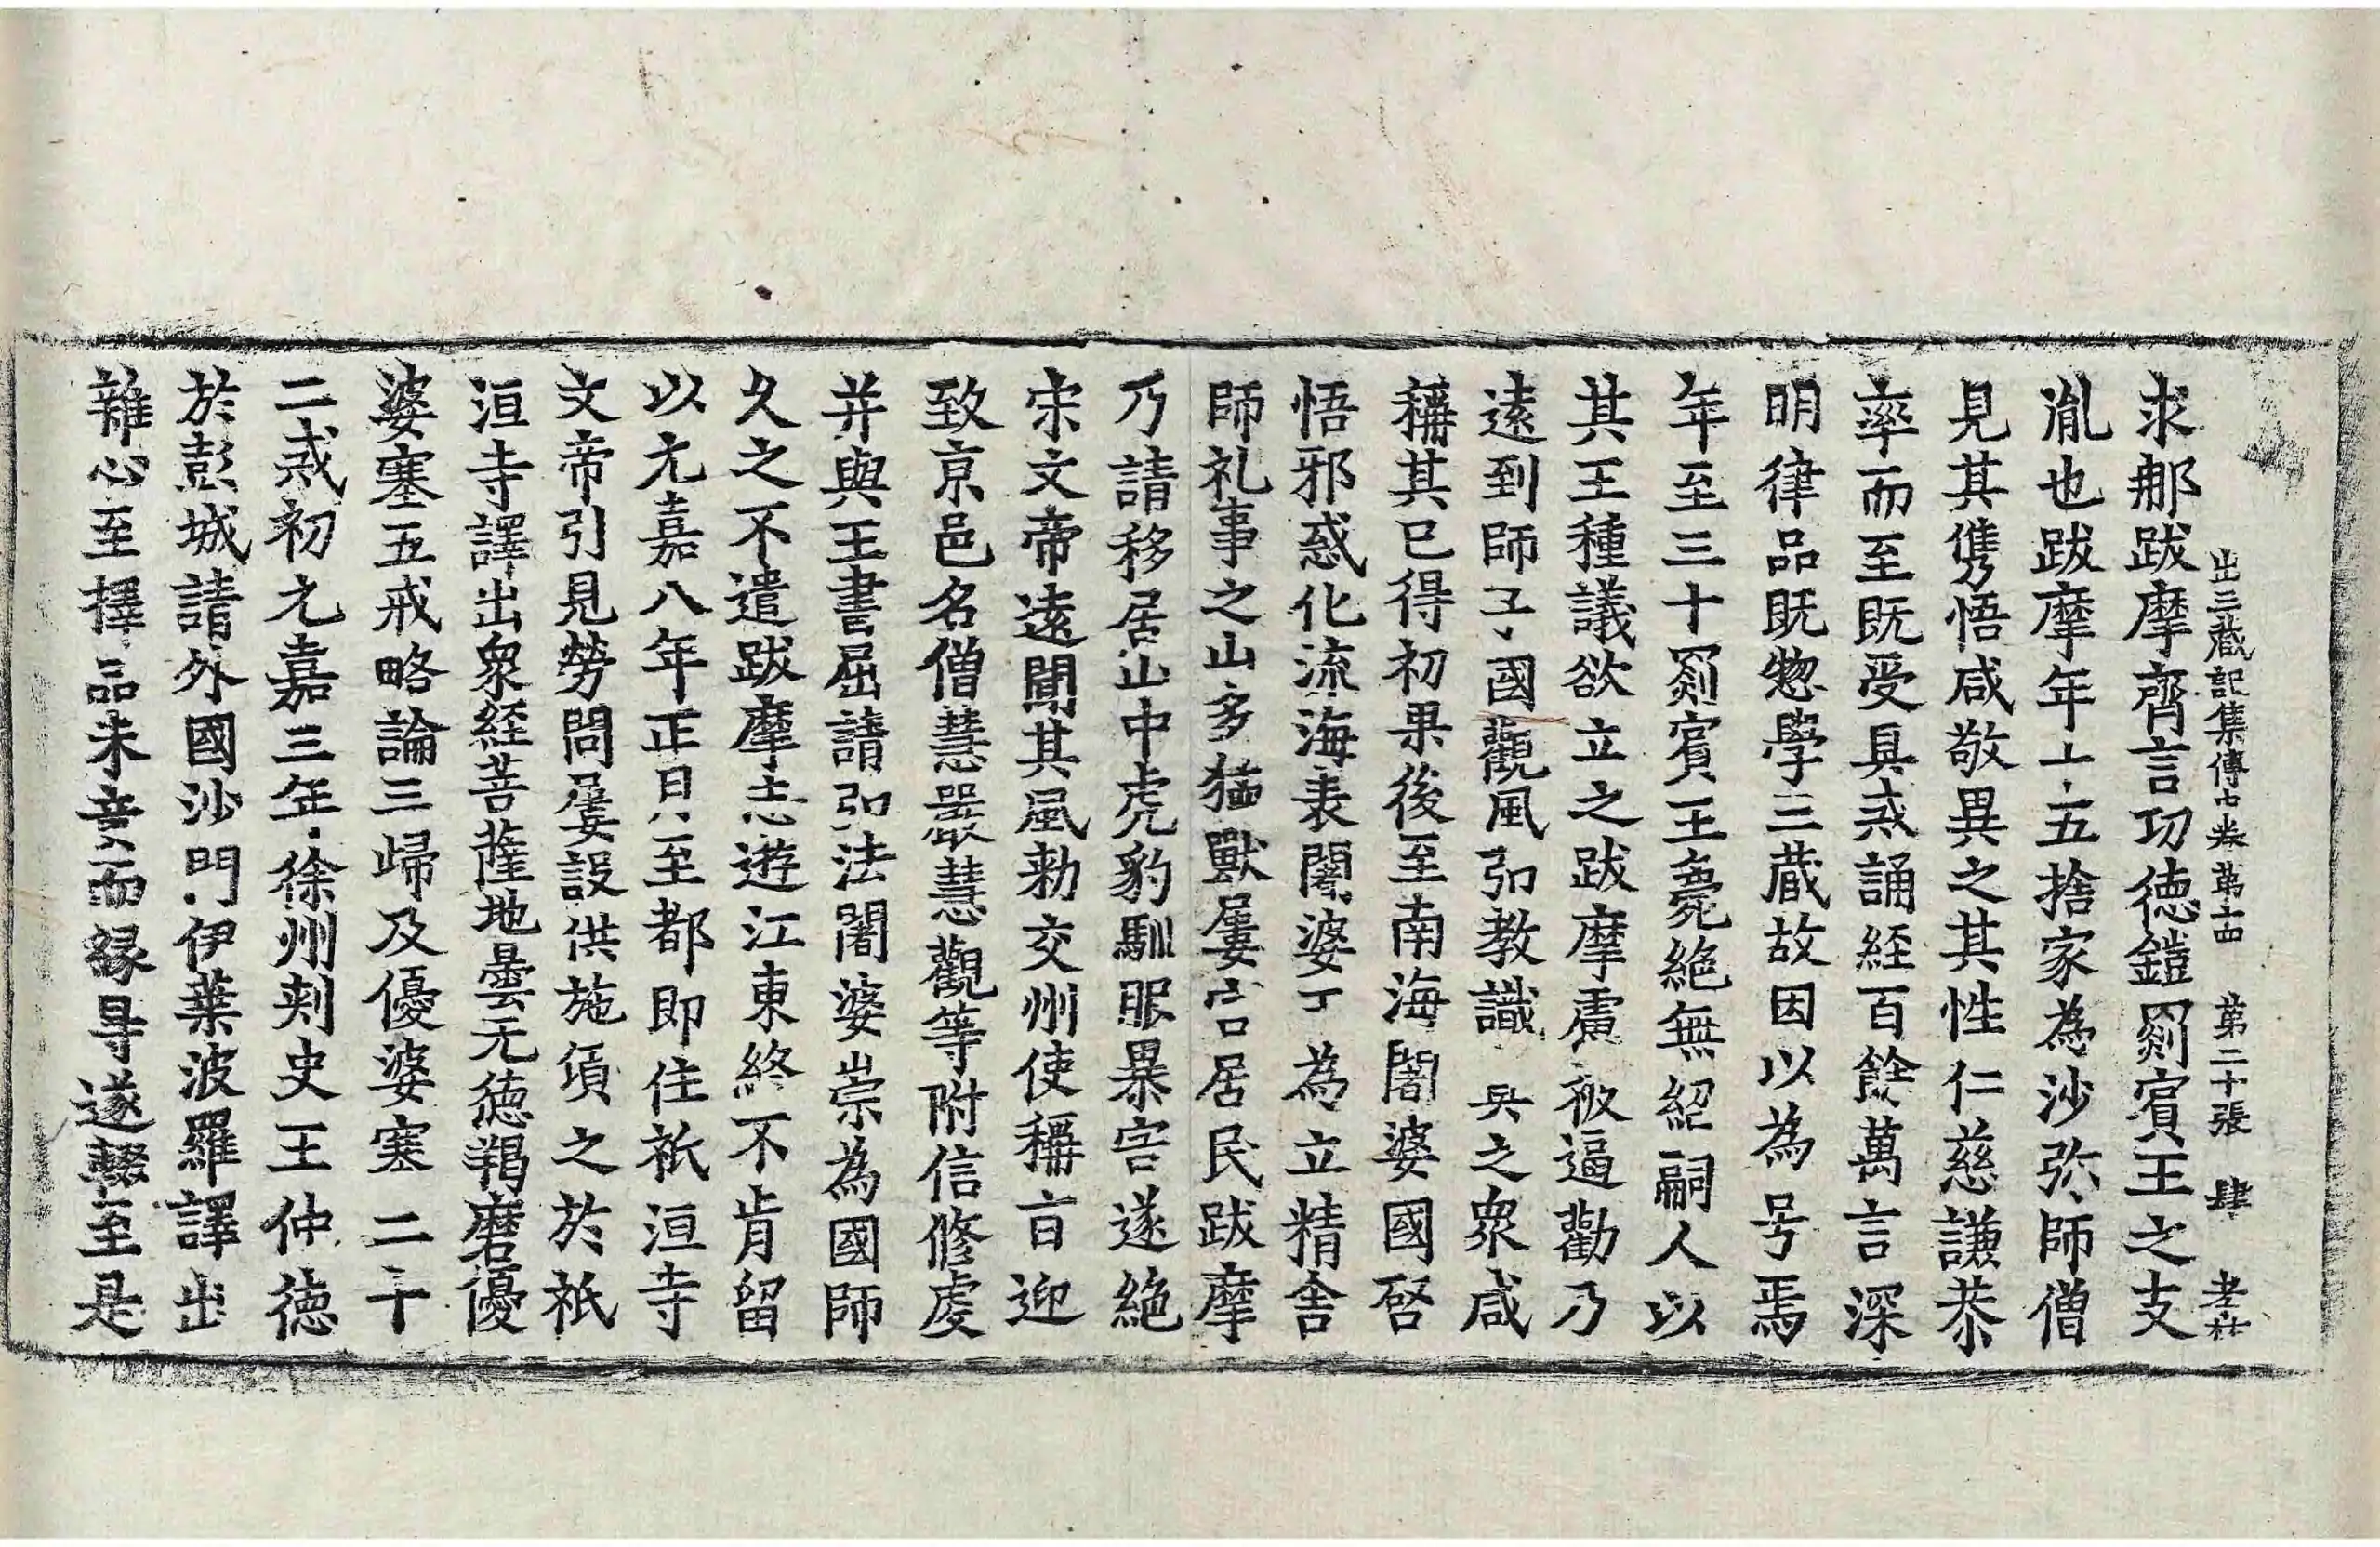 出三藏記集傳中卷第十四 第二十張 肆
求那跋摩齊言功德鎧罽賓王之支
胤也跋摩年十五捨家為沙弥師僧
見其儁悟咸敬異之其性仁慈謙恭
率而至既受具戒誦経百餘萬言深
明律品既惣學三蔵故因以為号焉
年至三十罽賓王薨絶無紹嗣人以
其王種議欲立之跋摩慮被逼勸乃
遠到師子國觀風弘教識真之衆咸
稱其已得初果後至南海闍婆國啓
悟邪惑化流海表闍婆王為立精舍
師礼事之山多猛獸屢害居民跋摩
乃請移居山中虎豹馴服暴害遂絶
宋文帝遠聞其風勅交州使稱旨迎
致京邑名僧慧嚴慧觀等附信修虔
并與王書屈請弘法闍婆崇為國師
久之不遣跋摩志遊江東終不肯留
以元嘉八年正月至都即住祇洹寺
文帝引見勞問屢設供施頃之於祇
洹寺譯出衆経菩薩地曇无德羯磨優
婆塞五戒略論三歸及優婆塞二十
二戒初元嘉三年徐州刾史王仲德
於彭城請外國沙門伊葉波羅譯出
雜心至擇品未竟而縁㝵遂輟至是